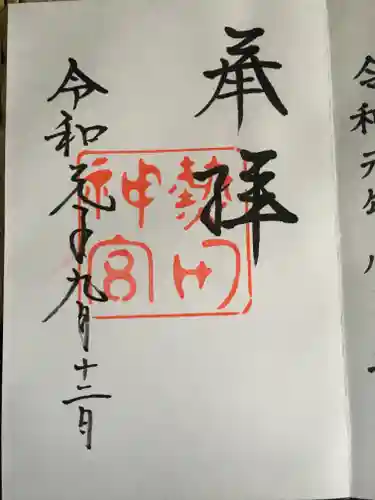 令和元年八
奉拝
熱田
神宮
令和元年九月十二日